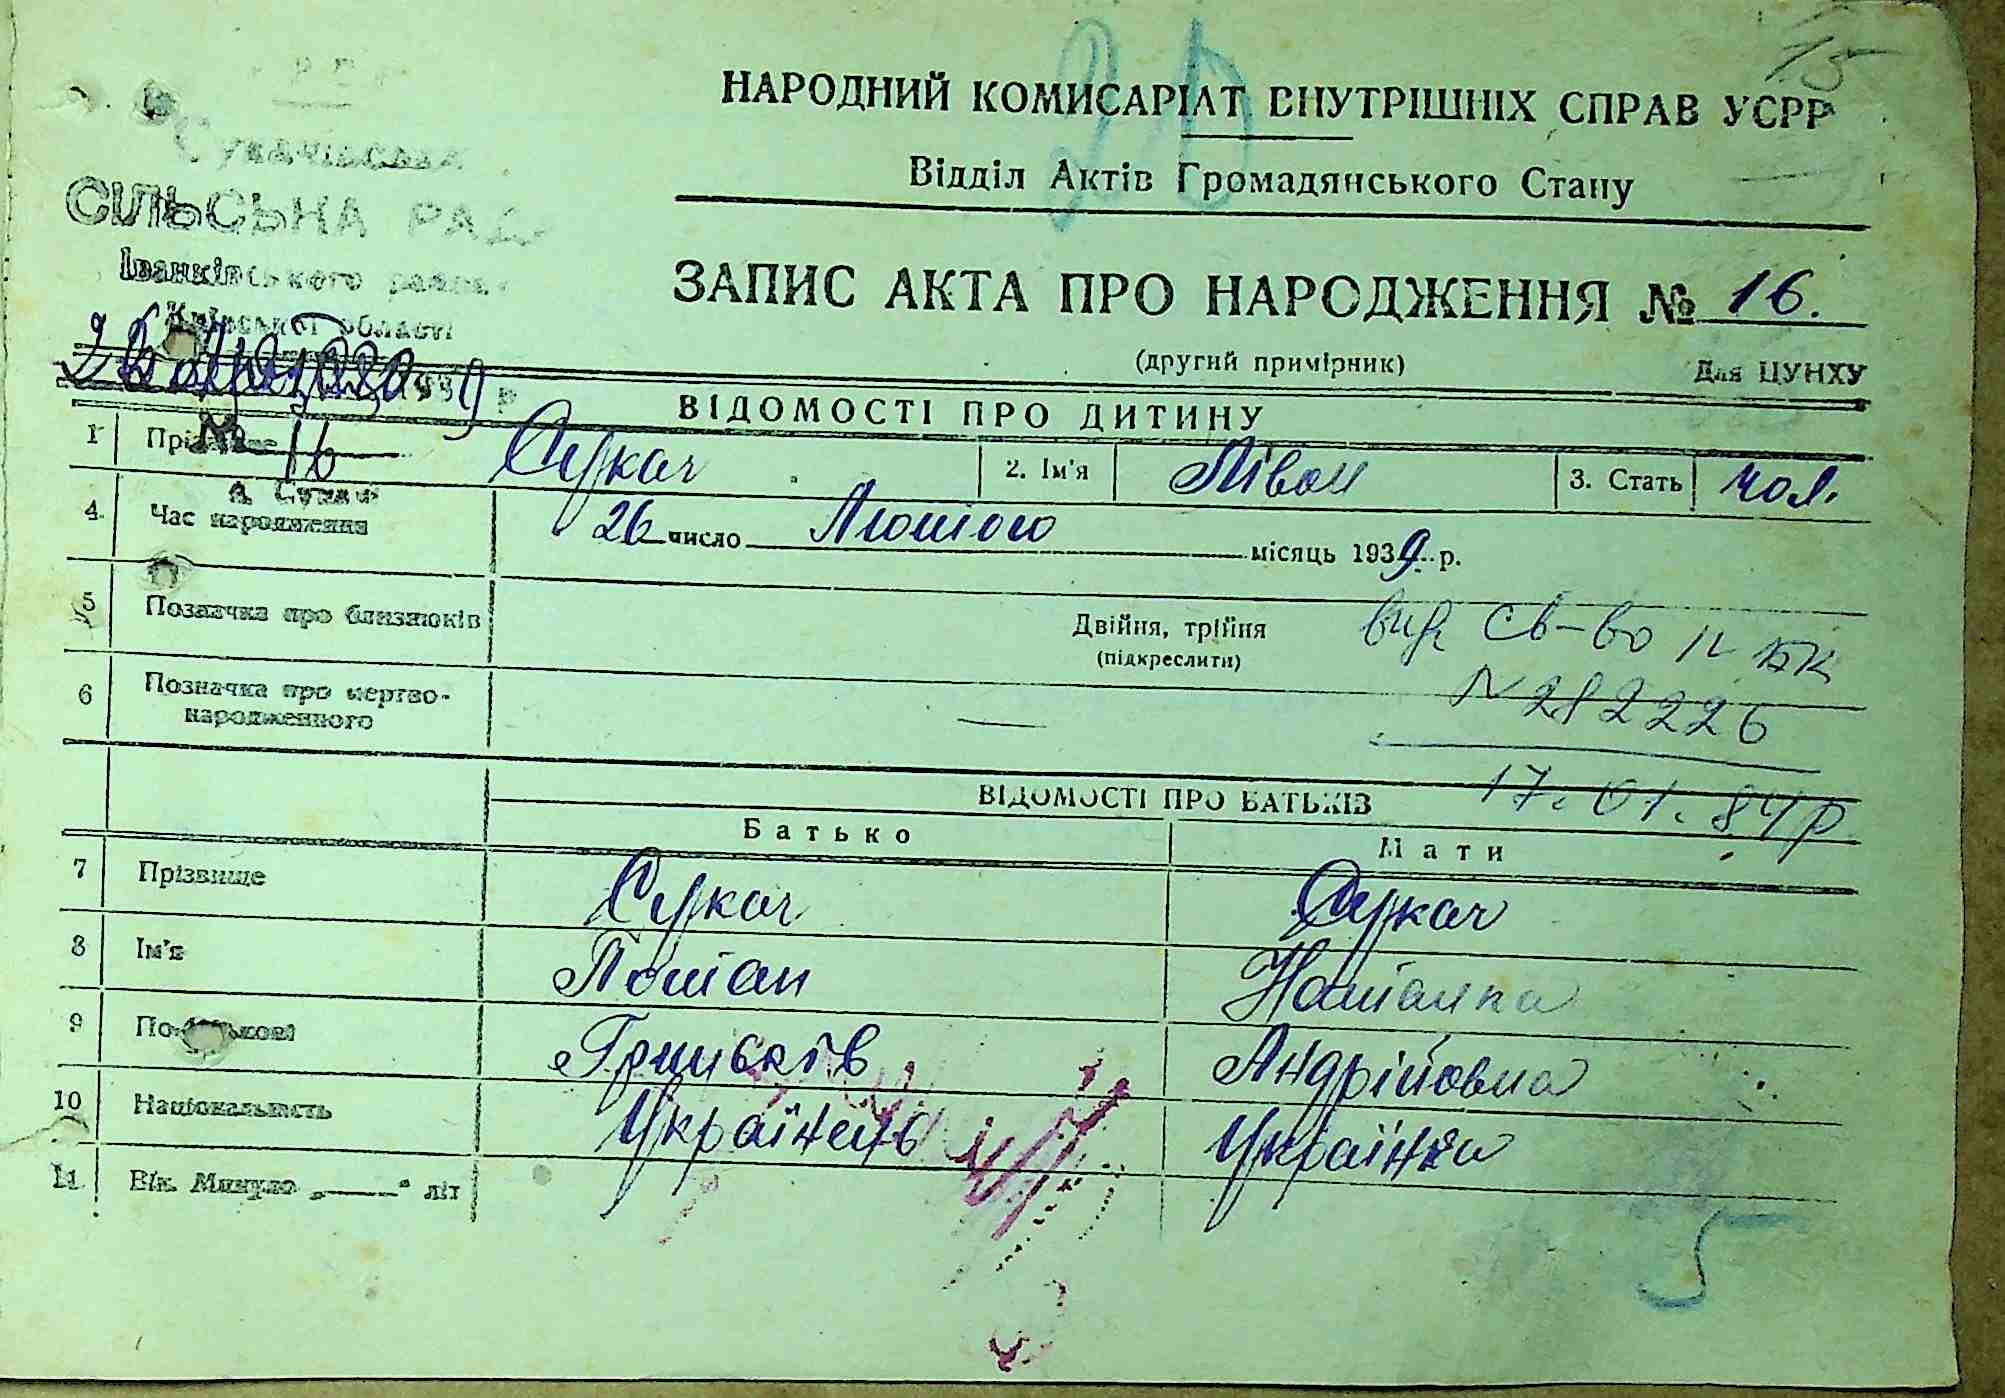 15
НАРОДНИЙ КОМИСАРІАТ ВНУТРІШНІХ СПРАВ УСРР
Відділ Актів Громадянського Стану
СІЛЬСЬКА РАДА
Іванківського району
Київської області
ЗАПИС АКТА ПРО НАРОДЖЕННЯ № 16.
(другий примірник)
Для ЦУНХУ
№ 16
с. Сукачі
ВІДОМОСТІ ПРО ДИТИНУ
1 Сукач 2. Ім'я Піван 3. Стать чол.
4 Час народження 26 число Лютого місяць 1939 р.
5 Позначка про близнюків Двійня, трійня
(підкреслити)
вид св-во II БК
N 282226
17.01.84р
6 Позначка про мертво-
народженного —
ВІДОМОСТІ ПРО БАТЬКІВ
Батько Мати
7 Прізвище Сукач Сукач
8 Ім'я Потап Наталка
9 По-батькові Андрійовна
10 Національність Українець Українка
11 Вік. Минуло „——“ літ
5